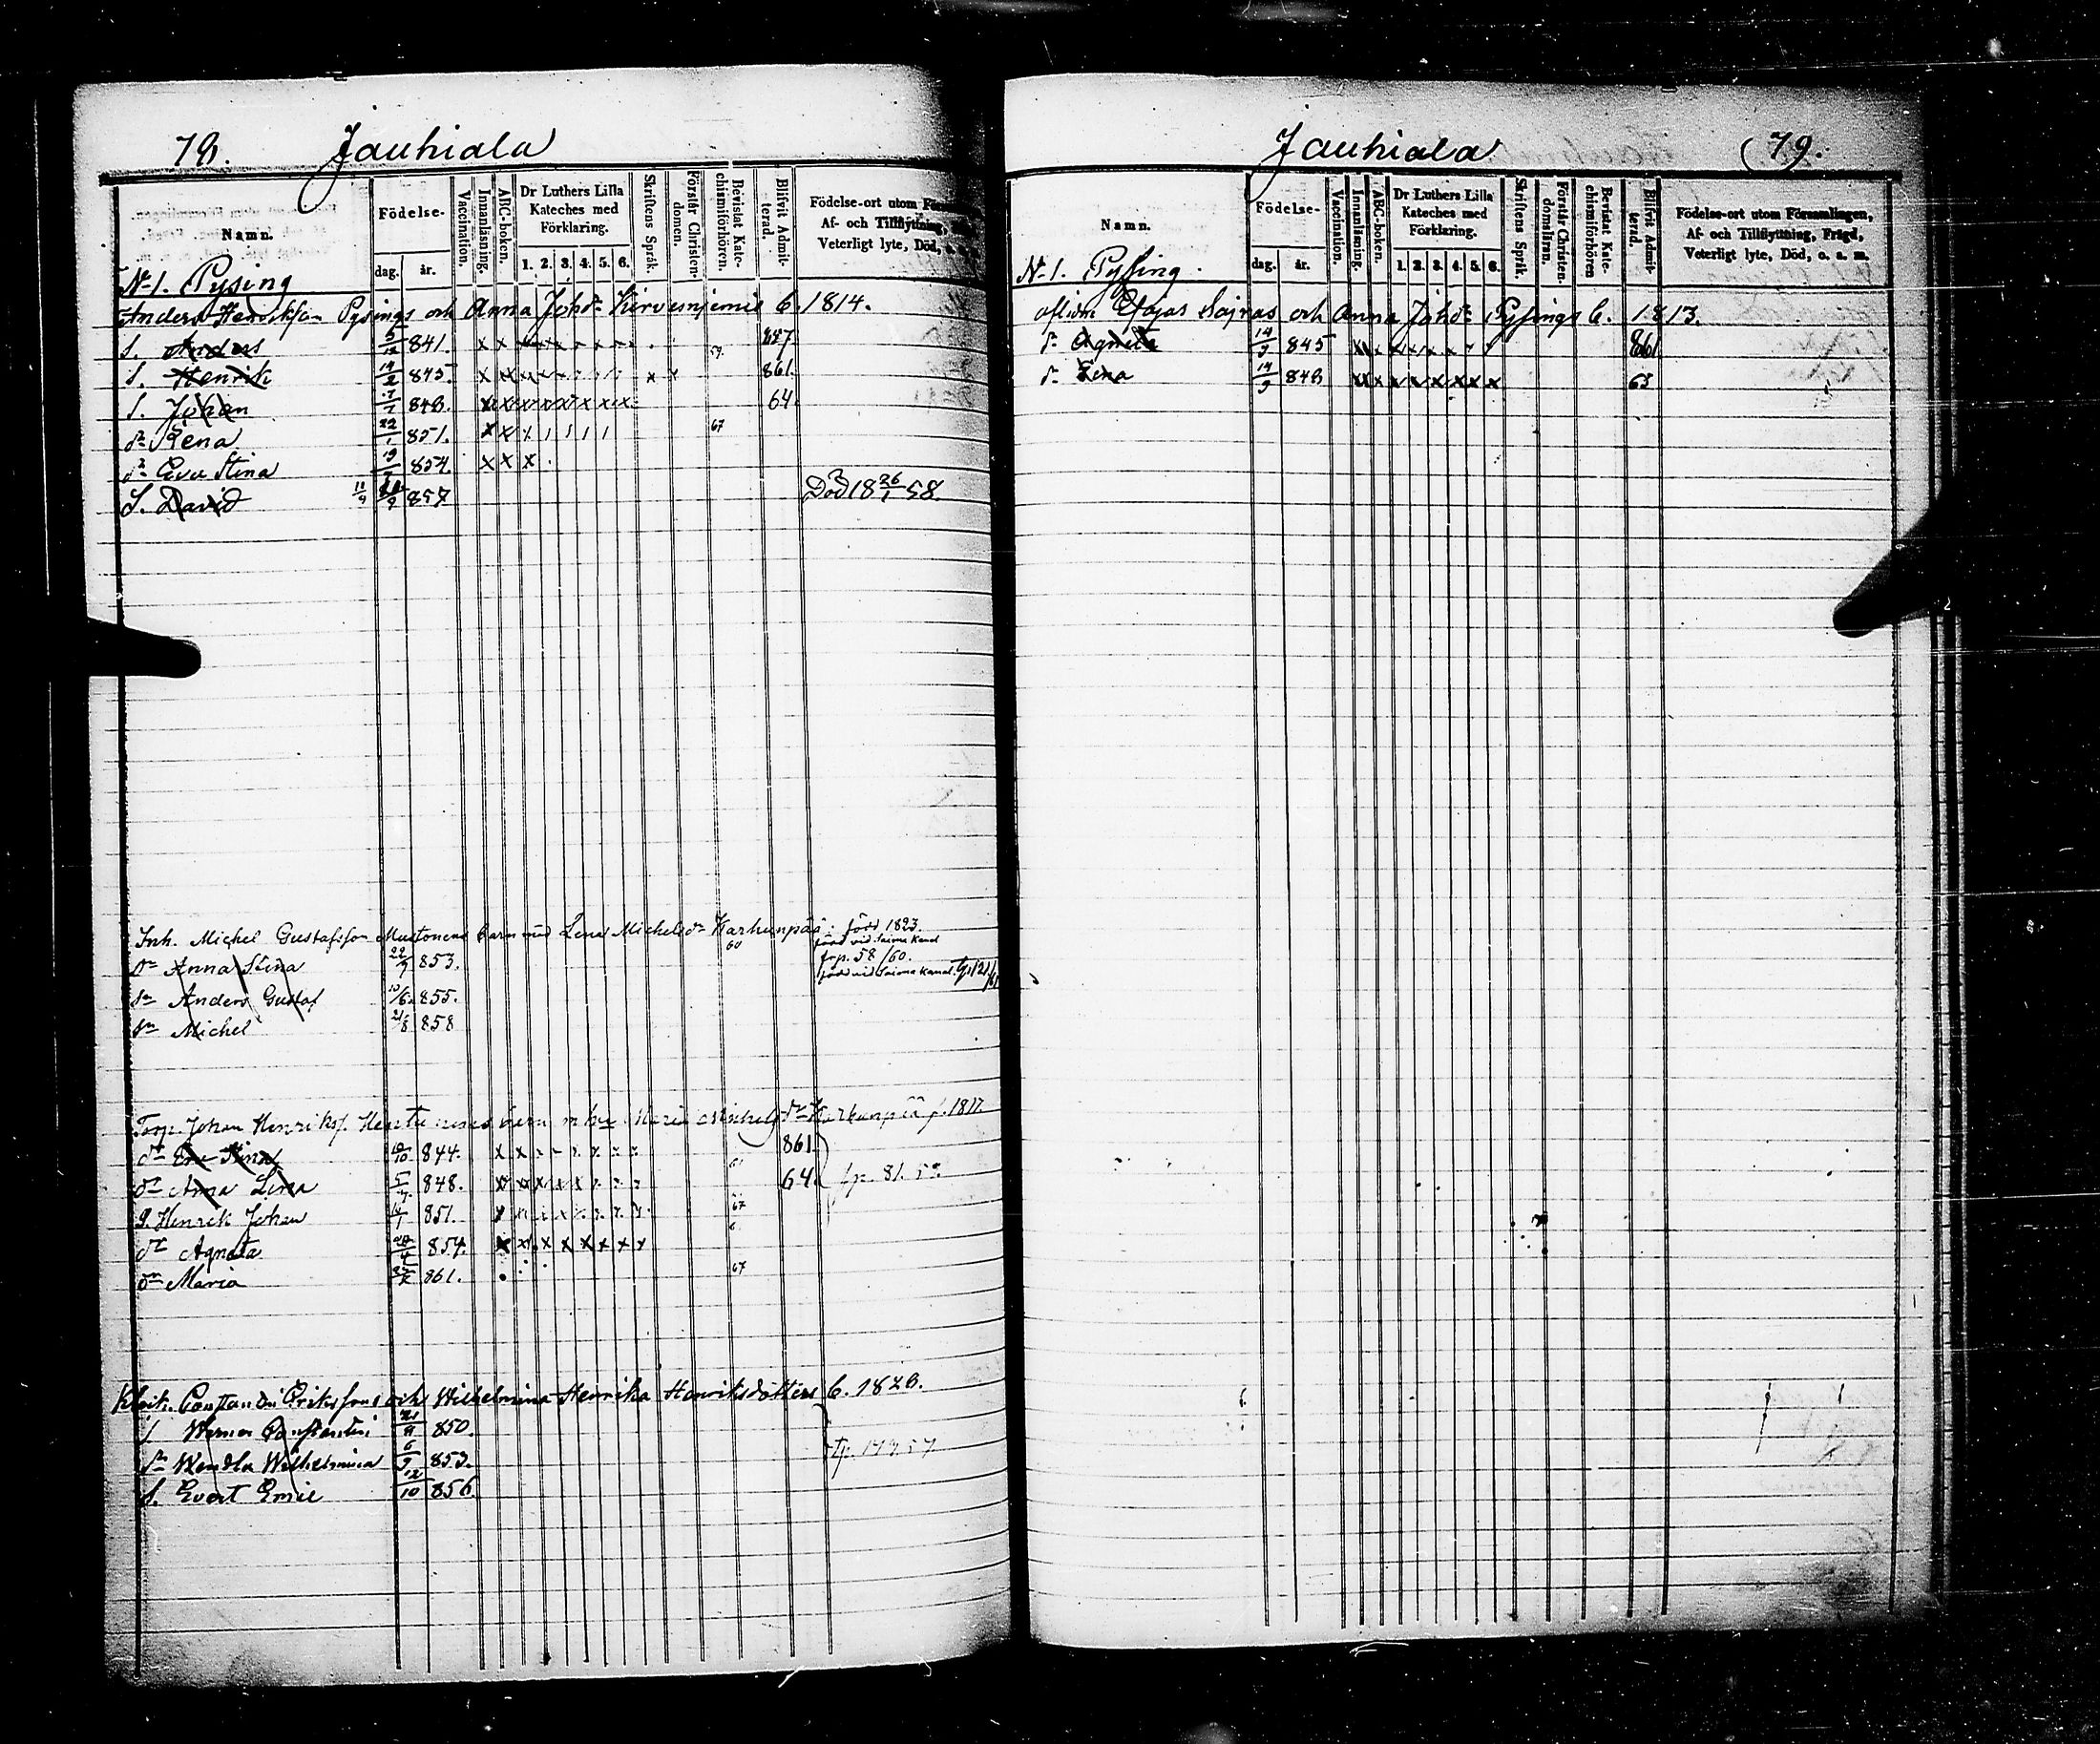 78. Jauhiala
Namn.
Födelse-
dag.
år.
Vaccination.
Innanläsning.
ABC-boken.
Dr Luthers Lilla Kateches med Förklaring.
1. 2. 3. 4. 5. 6.
Skriftens Språk.
Förstår Christen-domen.
Bevistat Kate-chismiförhören.
Blifvit Admit-terad.
Födelse-ort utom
Af- och Tillflyttning,
Veterligt lyte, Död, o. a.
N-1. Pysing
Anders Henrikson Pysings och Anna Johdr Kirvesniemis b. 1814.
S. Anders 5/12 841. 59. 857
S. Henrik 14/2 845. 861.
S. Johan 848. 64.
dr Lena 22/1 851. 67
dr Eva Stina 19 854.
S. David 857 Död 18 26/1 58.
Inh. Michel Gustafsson Mustonens barn med Lena Michelsdr Karhunpää född 1823.
född vid Saima Kanal
dr Anna Stina 22/9 853. 60 frp. 58/60.
född vid Saima Kanal.
sn Anders Gustaf 10/6 855.
sn Michel 21/8 858
Torp. Johan Henriks. barn m. Maria Michelsdr Karhunpää f. 1817.
dr Eva Stina 844. 861.
dr Anna Lena 848. 64. fp. 81.
S. Henrik Johan 851. 67
dr Agneta 854.
dr Maria 861. 67
Erikssons och Wilhelmina Henrika Henriksdotters b. 1828.
S. Werner Constantin 850.
dr Wendla Wilhelmina 6/9 853.
S. Evert Emil 12/10 856.
Jauhiala 79.
Namn.
Födelse-
dag.
år.
Vaccination.
Innanläsning.
ABC-boken.
Dr Luthers Lilla Kateches med Förklaring.
1. 2. 3. 4. 5. 6.
Skriftens Språk.
Förstår Christen-domsläran.
Bevistat Kate-chismiförhören
Blifvit Admit-terad.
Födelse-ort utom Församlingen,
Af- och Tillflyttning, Frägd,
Veterligt lyte, Död, o. a. m.
N-1. Pysing.
aflidne Sajras och Anna Johdr Pysings b. 1813.
dr Agneta 14/9 845 861
dr Lena 14/9 848 63